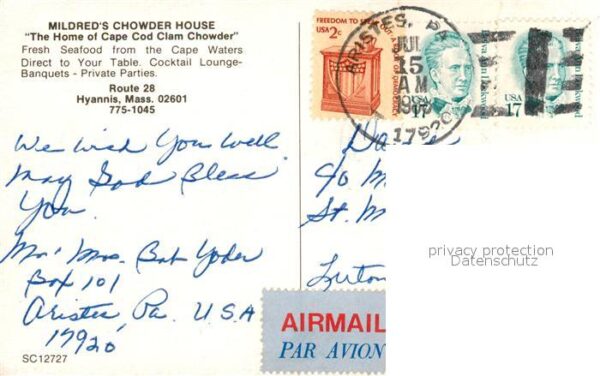 MILDRED'S CHOWDER HOUSE
"The Home of Cape Cod Clam Chowder"
Fresh Seafood from the Cape Waters
Direct to Your Table. Cocktail Lounge-
Banquets - Private Parties.
Route 28
Hyannis, Mass. 02601
775-1045
FREEDOM TO SPEAK OUT A ROOT OF DEMOCRACY
USA 2c
ARISTES, PA
JUL
15
AM
17920
USA
17
USA
17
We Wish You Well.
May God Bless
You.
Mr. Mrs. Bob Yoder
Box 101
Aristes Pa. U.S.A
17920
c/o M
St. M
AIRMAIL
PAR AVION
privacy protection
Datenschutz
SC12727